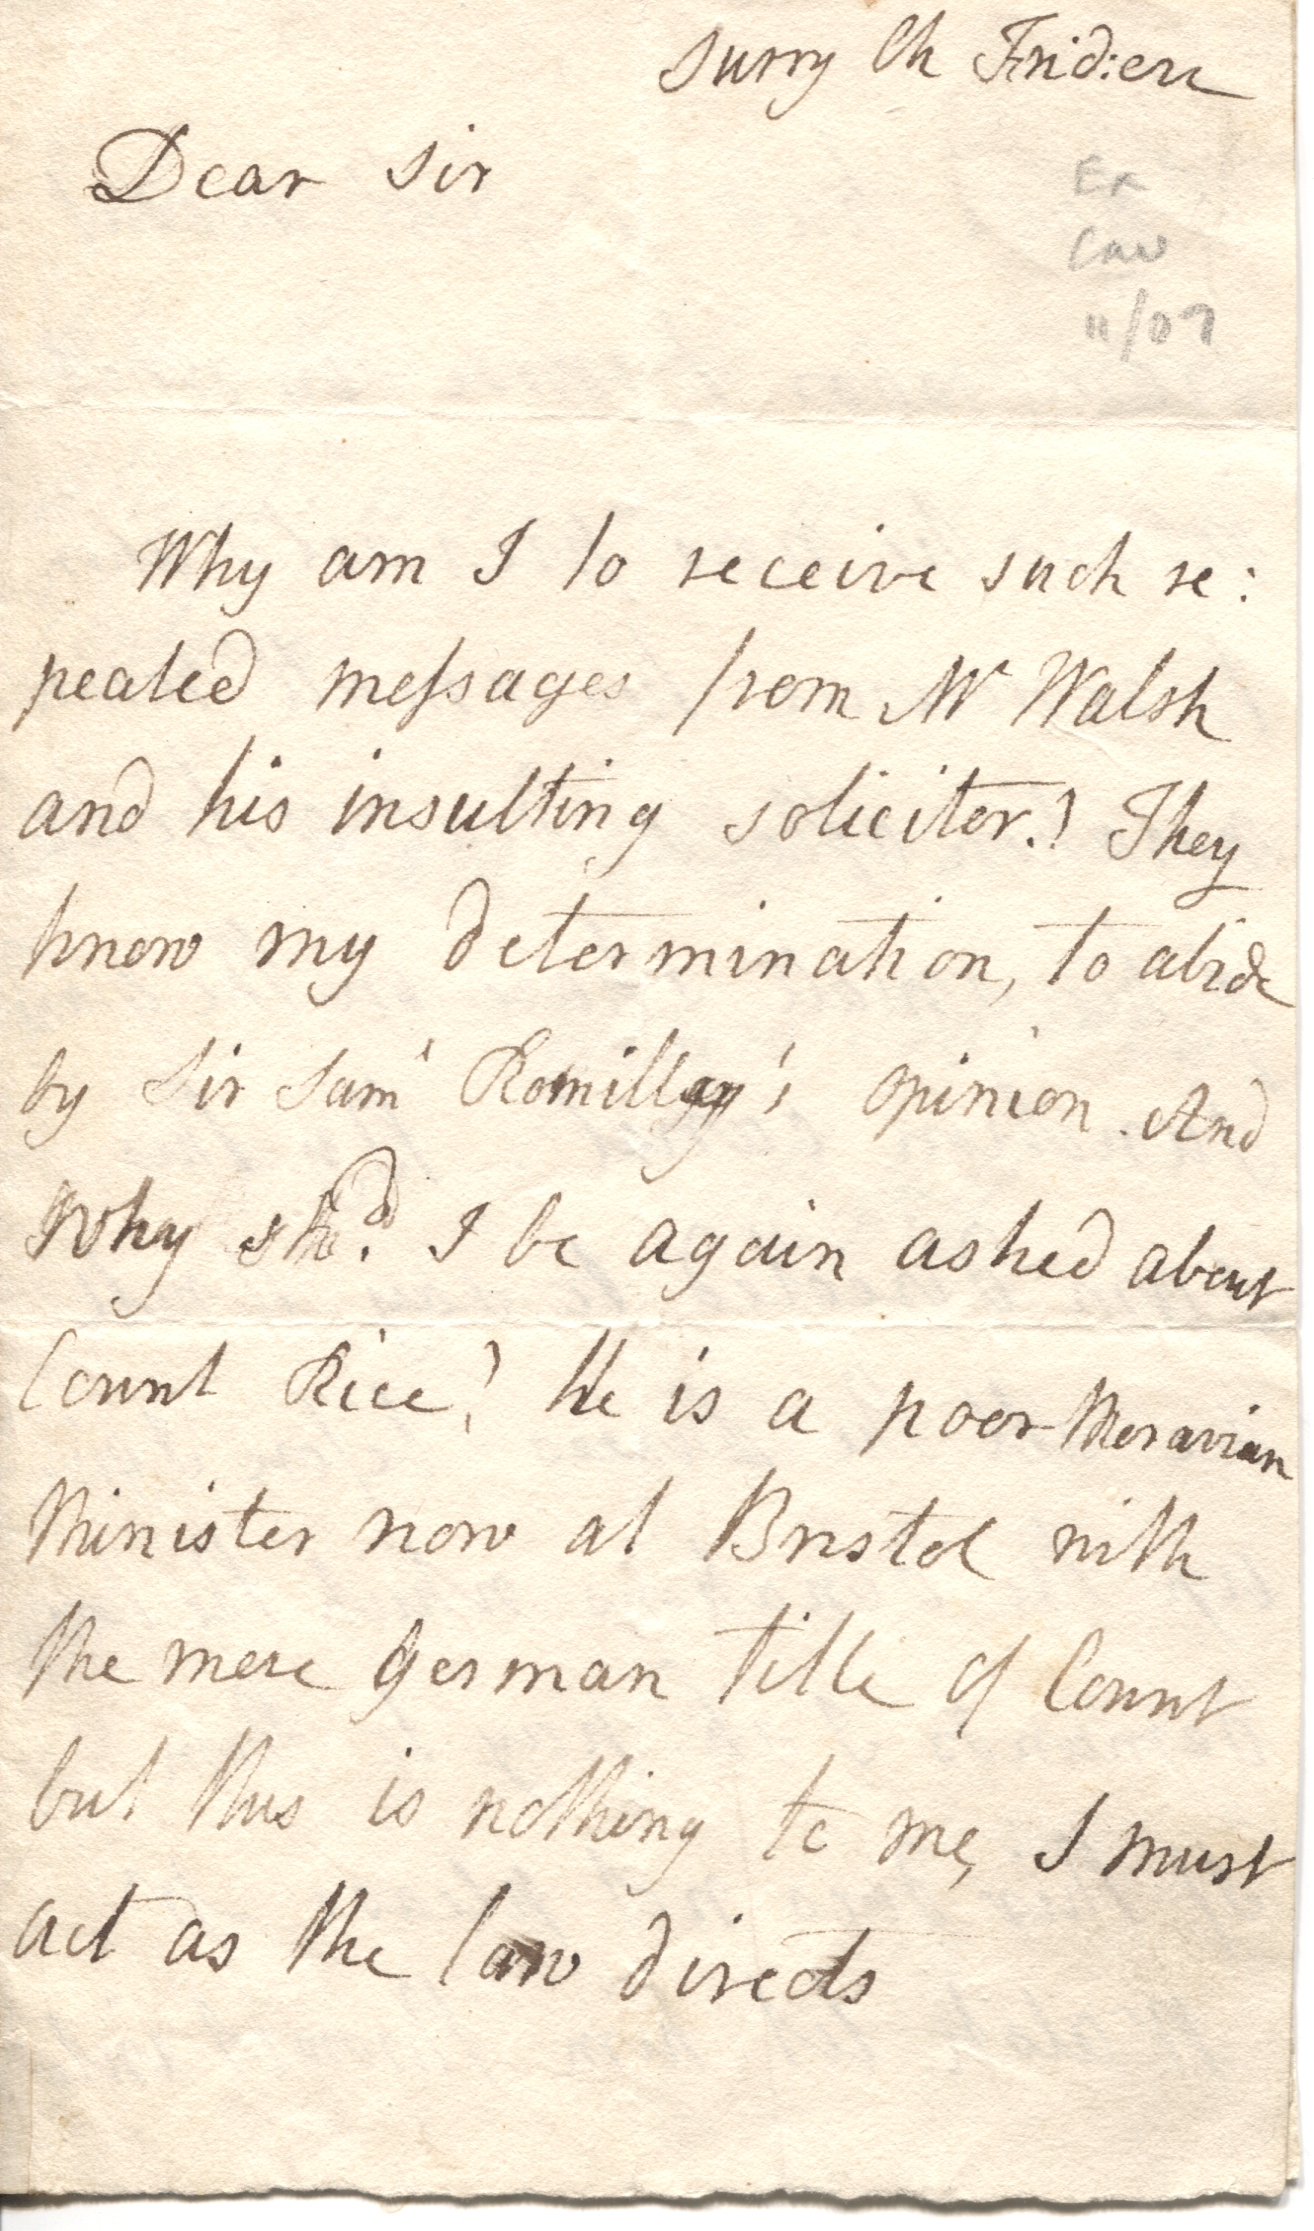 Surry Ch Frid: eve
Dear Sir
Ex
Cav
11/07
Why am I to receive such re:
peated messages from Mr Walsh
and his insulting solicitor.? They
know my determination, to abide
by Sir Saml Romilly's opinion. And
why shd. I be again asked about
Count Rice? He is a poor Moravian
Minister now at Bristol with
the mere German title of Count
but this is nothing to me, I must
act as the law directs